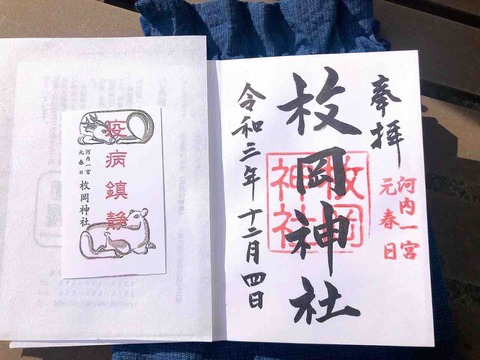 奉拝
河内一宮
元春日
枚岡神社
枚岡
神社
令和三年十二月四日
疫病鎮静
河内一宮
元春日
枚岡神社